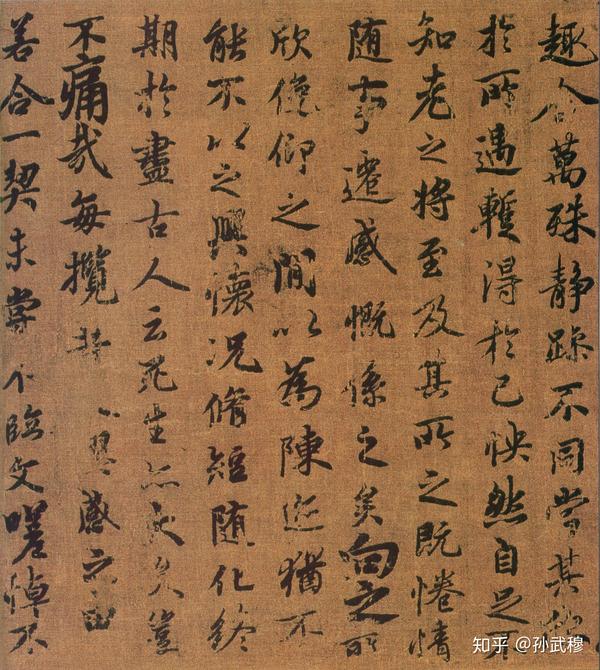 趣舍萬殊静躁不同當其欣
於所遇暫得於己怏然自足不
知老之將至及其所之既惓情
随事遷感慨係之矣向之所
欣俛仰之閒以為陳迹猶不
能不以之興懷况脩短随化終
期於盡古人云死生亦大矣豈
不痛哉每攬昔人興感之由
若合一契未嘗不臨文嗟悼不
知乎 @孙武穆